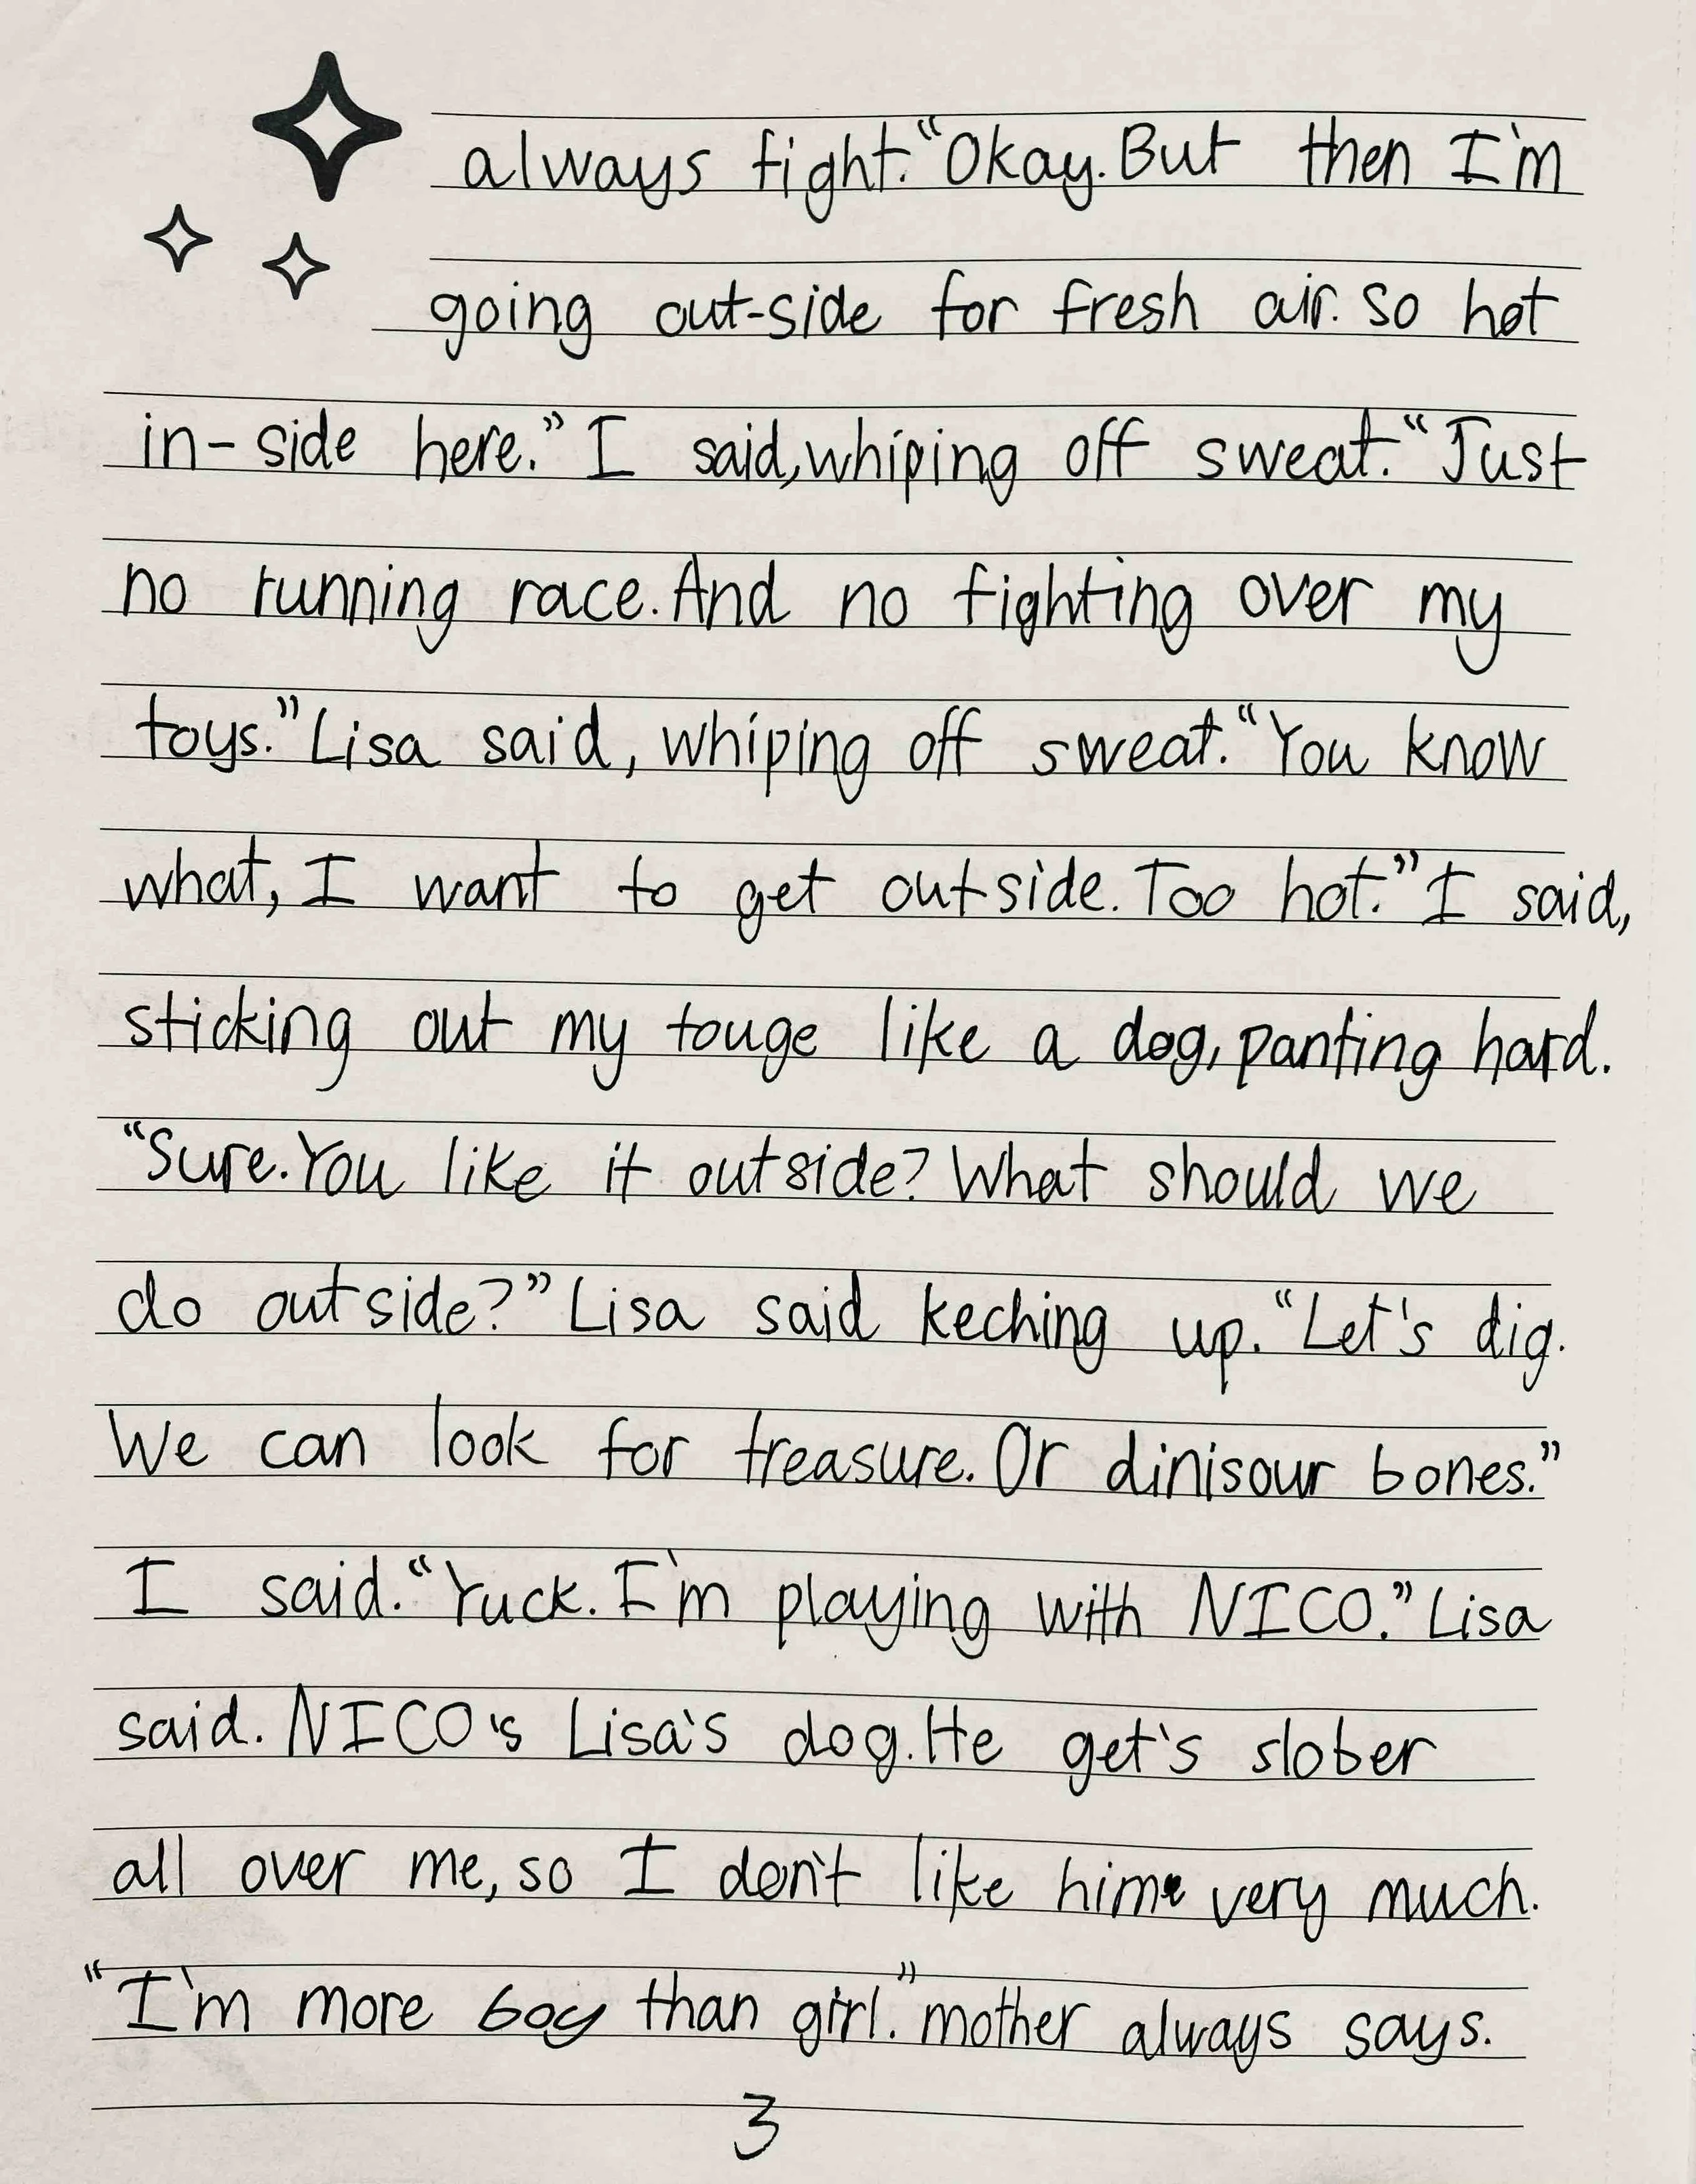 always fight. “Okay. But then I'm
going out-side for fresh air. so hot
in-side here.” I said, whiping off sweat. “Just
no running race. And no fighting over my
toys.” Lisa said, whiping off sweat. “You know
what, I want to get outside. Too hot.” I said,
sticking out my touge like a dog, panting hard.
“Sure. You like it outside? What should we
do outside?” Lisa said keching up. “Let's dig.
We can look for treasure. Or dinisour bones.”
I said. “Yuck. I'm playing with NICO.” Lisa
said. NICO's Lisa's dog. He get's slober
all over me, so I don't like hime very much.
“I'm more boy than girl.” mother always says.
3